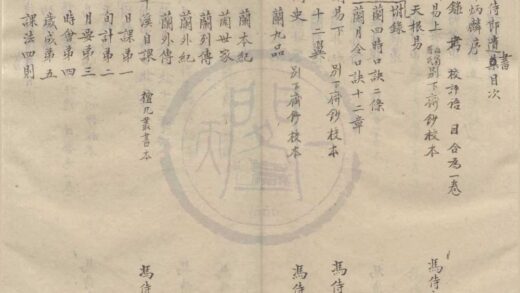 侍郎遺書目次
炳麟序
錄 校評語目合為一卷
易上 別下齋鈔校本 馮侍
天根易
附錄
蘭四時口訣二條
蘭月令口訣十二章
易下 別下齋鈔校本 馮侍
十二翼
史 別下齋鈔校本 馮侍
蘭九品
蘭本紀
蘭世家
蘭列傳
蘭外紀
蘭外傳
溪自課 檀几叢書本 馮侍
日課第一
旬計第二
月要第三
時會第四
歲成第五
課法四則